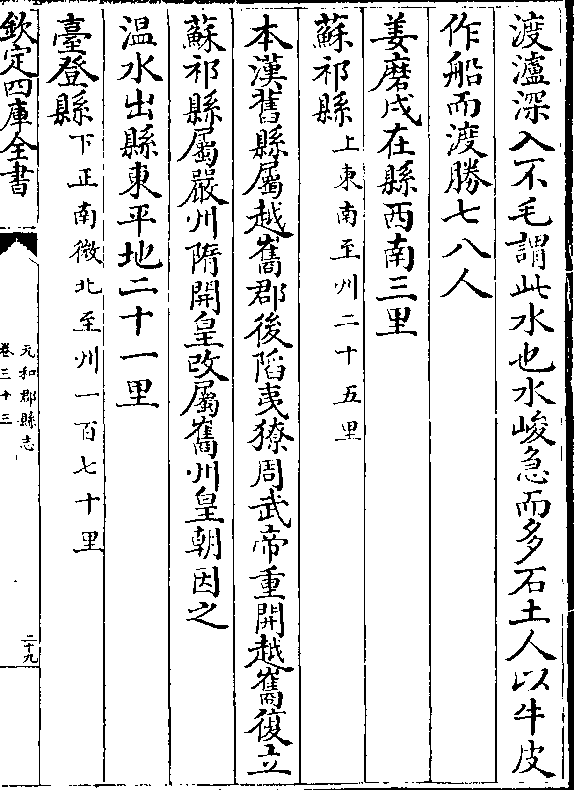 渡瀘深入不毛謂此水也水峻急而多石土人以牛皮
作船而渡勝七八人
姜磨戍在縣西南三里
蘇祁縣上東南至州二十五里
本漢舊縣屬越巂郡後陷夷獠周武帝重開越巂復立
蘇祁縣屬嚴州隋開皇改屬巂州皇朝因之
温水出縣東平地二十一里
臺登縣下正南微北至州一百七十里
欽定四庫全書
元和郡縣志
卷三十三
二十九